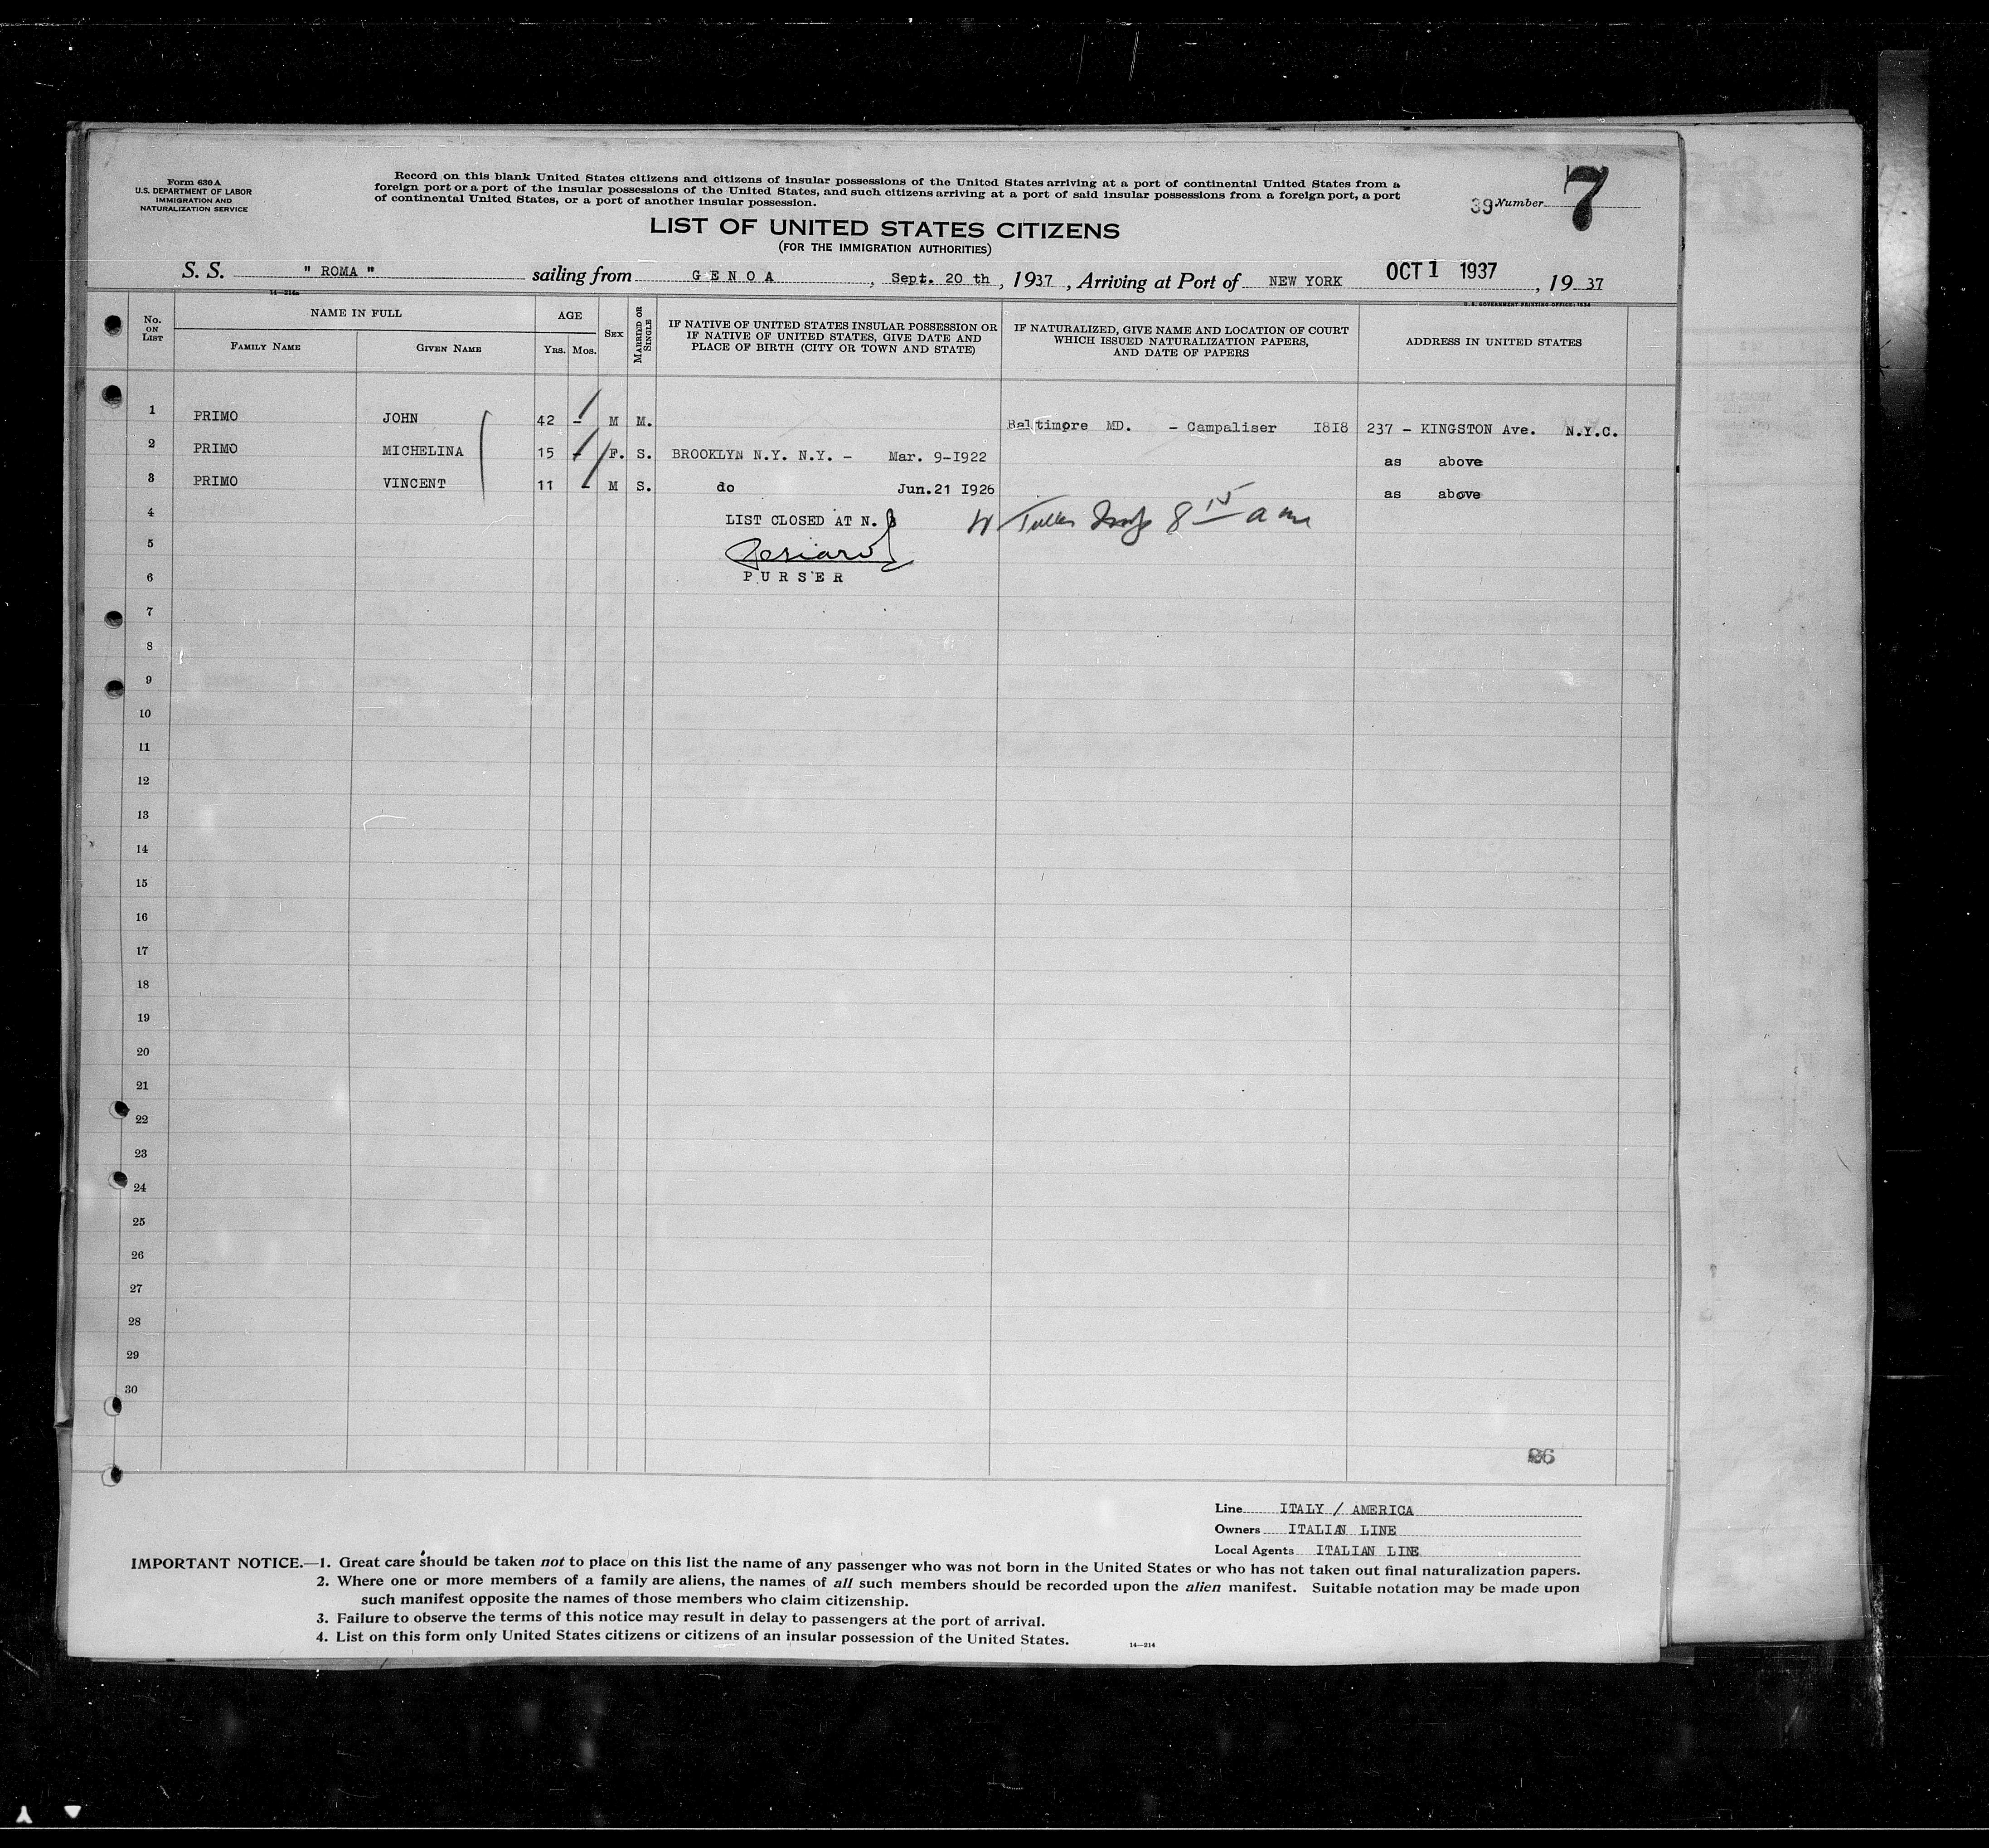 Form 630 A
U.S. DEPARTMENT OF LABOR
IMMIGRATION AND
NATURALIZATION SERVICE
Record on this blank United States citizens and citizens of insular possessions of the United States arriving at a port of continental United States from a
foreign port or a port of the insular possessions of the United States, and such citizens arriving at a port of said insular possessions from a foreign port, a port
of continental United States, or a port of another insular possession.
39 Number 7
LIST OF UNITED STATES CITIZENS
(FOR THE IMMIGRATION AUTHORITIES)
S. S. " ROMA " sailing from GENOA, Sept. 20 th, 1937, Arriving at Port of NEW YORK OCT 1 1937, 19 37
14—214a
U. S. GOVERNMENT PRINTING OFFICE: 1934
No. ON LIST
NAME IN FULL
FAMILY NAME GIVEN NAME
AGE
YRS. MOS.
SEX
MARRIED OR SINGLE
IF NATIVE OF UNITED STATES INSULAR POSSESSION OR
IF NATIVE OF UNITED STATES, GIVE DATE AND
PLACE OF BIRTH (CITY OR TOWN AND STATE)
IF NATURALIZED, GIVE NAME AND LOCATION OF COURT
WHICH ISSUED NATURALIZATION PAPERS,
AND DATE OF PAPERS
ADDRESS IN UNITED STATES
1 PRIMO JOHN 42 - M M. Baltimore MD. - Campaliser I8I8 237 - KINGSTON Ave. N.Y.C.
2 PRIMO MICHELINA 15 - F. S. BROOKLYN N.Y. N.Y. - Mar. 9-I922 as above
3 PRIMO VINCENT 11 - M S. do Jun.21 I926 as above
4 LIST CLOSED AT N. 3 8 15 a m
5
6 PURSER
7
8
9
10
11
12
13
14
15
16
17
18
19
20
21
22
23
24
25
26
27
28
29
30
Line ITALY / AMERICA
Owners ITALIAN LINE
Local Agents ITALIAN LINE
IMPORTANT NOTICE.—1. Great care should be taken not to place on this list the name of any passenger who was not born in the United States or who has not taken out final naturalization papers.
2. Where one or more members of a family are aliens, the names of all such members should be recorded upon the alien manifest. Suitable notation may be made upon
such manifest opposite the names of those members who claim citizenship.
3. Failure to observe the terms of this notice may result in delay to passengers at the port of arrival.
4. List on this form only United States citizens or citizens of an insular possession of the United States.
14—214